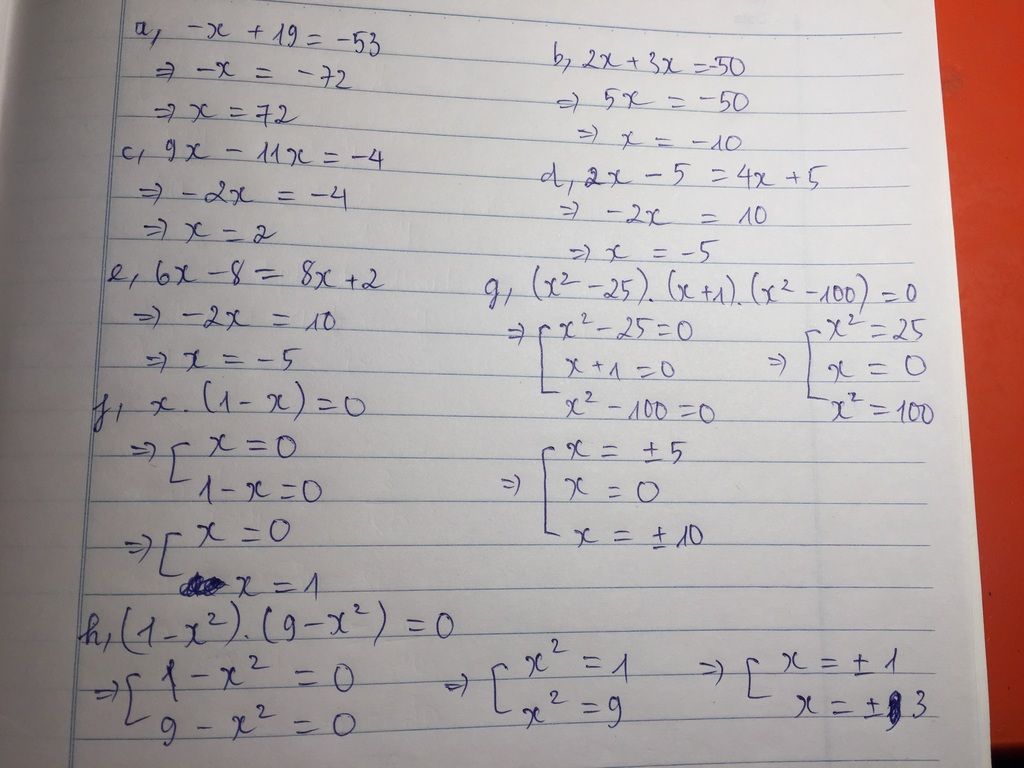 a, -x + 19 = -53
⇒ -x = -72
⇒ x = 72
b, 2x + 3x = -50
⇒ 5x = -50
⇒ x = -10
c, 9x - 11x = -4
⇒ -2x = -4
⇒ x = 2
d, 2x - 5 = 4x + 5
⇒ -2x = 10
⇒ x = -5
e, 6x - 8 = 8x + 2
⇒ -2x = 10
⇒ x = -5
g, (x² - 25) . (x + 1) . (x² - 100) = 0
⇒ [ x² - 25 = 0 ⇒ [ x² = 25
x + 1 = 0 x = 0
x² - 100 = 0 x² = 100
⇒ [ x = ±5
x = 0
x = ±10
f, x . (1 - x) = 0
⇒ [ x = 0
1 - x = 0
⇒ [ x = 0
x = 1
h, (1 - x²) . (9 - x²) = 0
⇒ [ 1 - x² = 0 ⇒ [ x² = 1 ⇒ [ x = ±1
9 - x² = 0 x² = 9 x = ±3